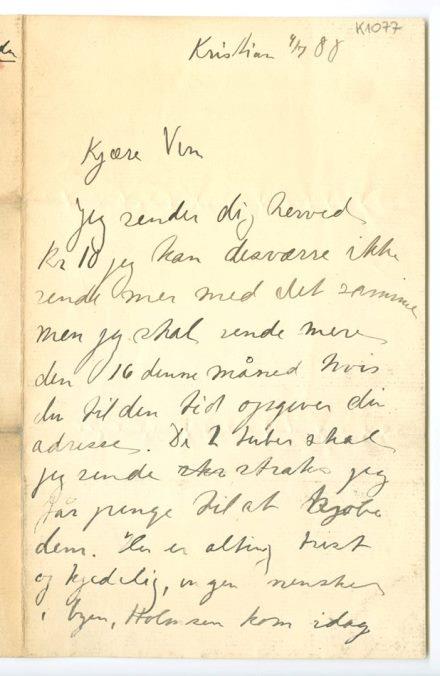 K1077
Kristian 4/7 88
Kjære Ven
Jeg sender dig herved
Kr 10 jeg kan desværre ikke
sende mer med det samme
men jeg skal sende mere
den 16 denne måned hvis
du til den tid opgiver din
adresse. De 2 tuber skal
jeg sende straks jeg
får penge til at kjøbe
dem. Her er alting trist
og kjedelig, ingen mensker
i byen, Holmsen kom idag